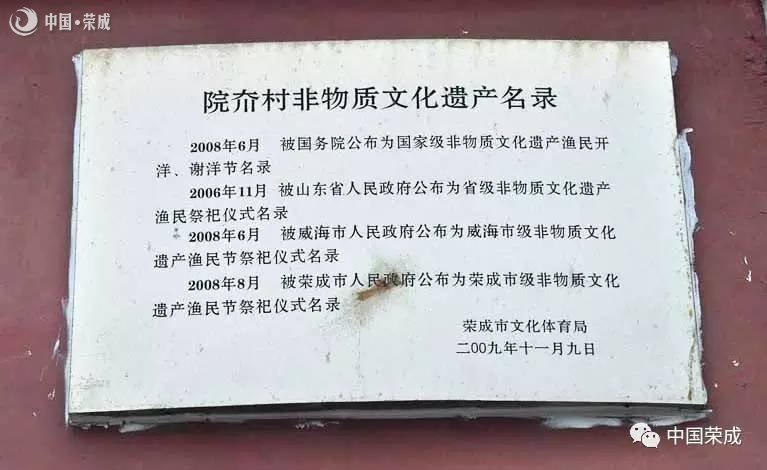 中国·荣成
院夼村非物质文化遗产名录
2008年6月 被国务院公布为国家级非物质文化遗产渔民开
洋、谢洋节名录
2006年11月 被山东省人民政府公布为省级非物质文化遗产
渔民祭祀仪式名录
2008年6月 被威海市人民政府公布为威海市级非物质文化
遗产渔民节祭祀仪式名录
2008年8月 被荣成市人民政府公布为荣成市级非物质文化
遗产渔民节祭祀仪式名录
荣成市文化体育局
二00九年十一月九日
中国荣成